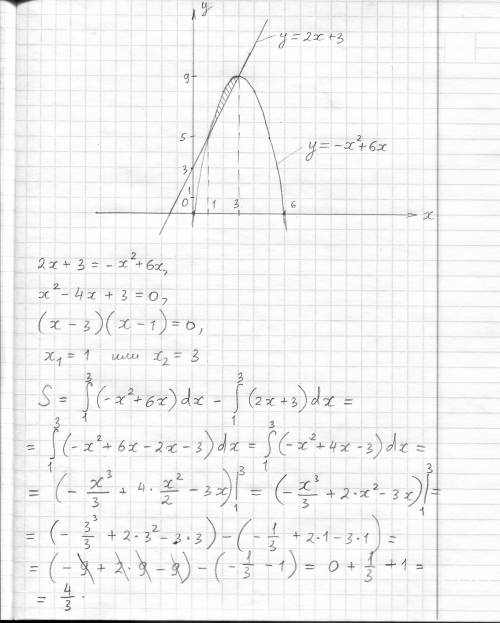 y
y = 2x + 3
9
y = -x² + 6x
5
3
1
0 1 3 6 x
2x + 3 = -x² + 6x,
x² - 4x + 3 = 0,
(x - 3)(x - 1) = 0,
x₁ = 1 или x₂ = 3
S = ∫₁³ (-x² + 6x) dx - ∫₁³ (2x + 3) dx =
= ∫₁³ (-x² + 6x - 2x - 3) dx = ∫₁³ (-x² + 4x - 3) dx =
= (- x³/3 + 4 · x²/2 - 3x) |₁³ = (- x³/3 + 2 · x² - 3x) |₁³ =
= (- 3³/3 + 2 · 3² - 3 · 3) - (- 1/3 + 2 · 1 - 3 · 1) =
= (- 9 + 2 · 9 - 9) - (- 1/3 - 1) = 0 + 1/3 + 1 =
= 4/3 .